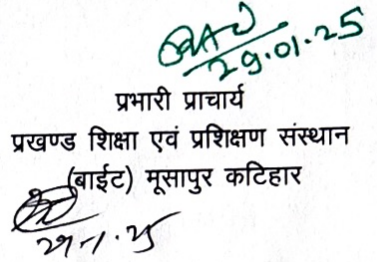 29.01.25
प्रभारी प्राचार्य
प्रखण्ड शिक्षा एवं प्रशिक्षण संस्थान
(बाईट) मूसापुर कटिहार
29-1.25